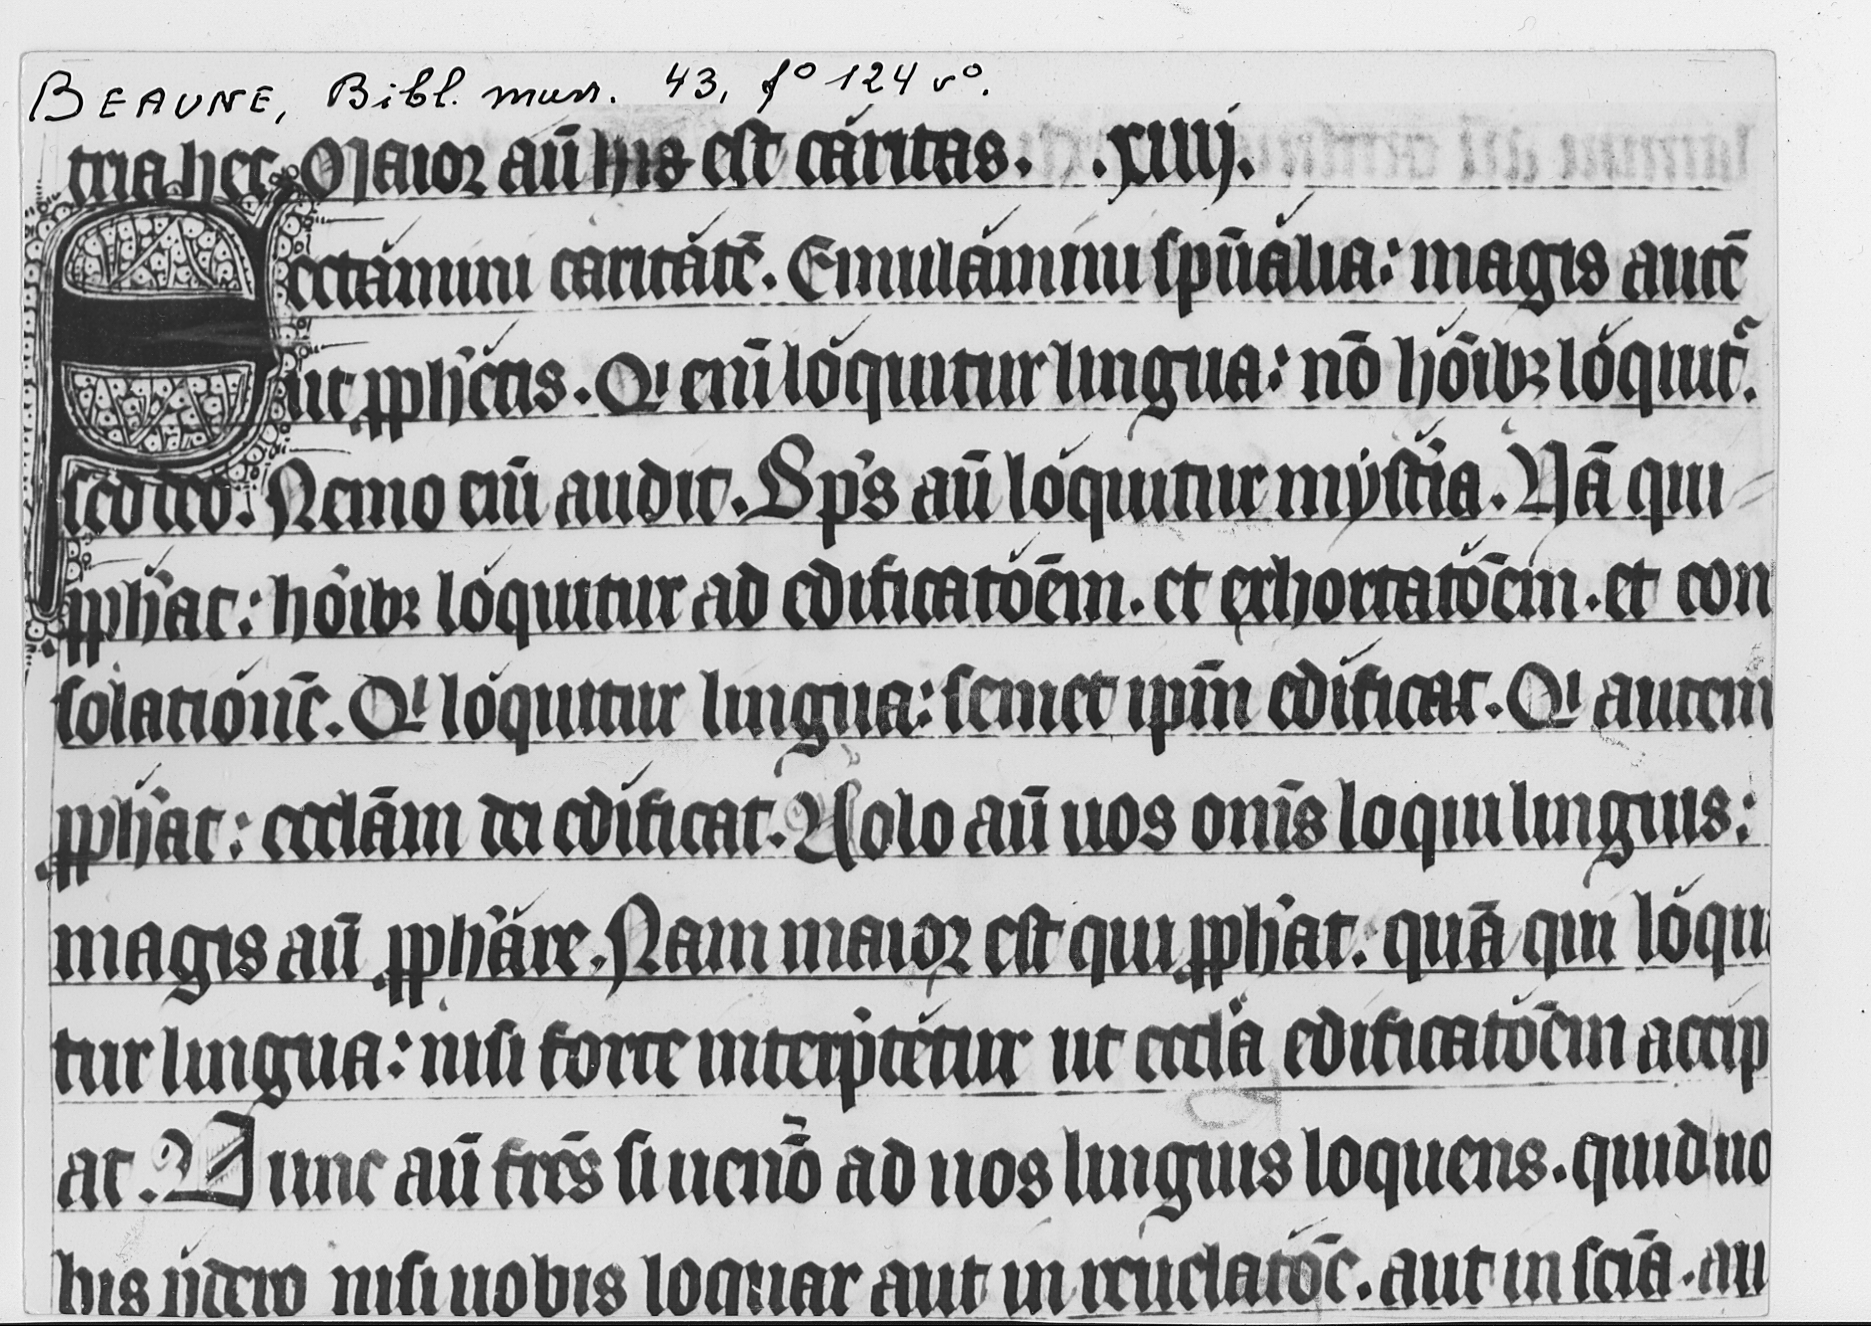 BEAUNE, Bibl. mun. 43, f° 124 v°.
tria hec. Maior aū his est caritas. .xiiij.
Sectamini caritatē. Emulamini spūalia: magis autē
ut ꝓphetis. Qi enī loquitur lingua: nō hōibꝫ loquit᷑.
sed deo. Nemo enī audit. Sp̄s aū loquitur mysťia. Nā qui
ꝓph'at: hōibꝫ loquitur ad edificatōēm. et exhortatōēm. et con
solationē. Qi loquitur lingua: semet ipm̄ edificat. Qi autem
ꝓph'at: eccl̄am dei edificat. Uolo aū uos om̄is loqui linguis:
magis aū ꝓph'are. Nam maior est qui ꝓph'at: quā qui loqui
tur lingua: nisi forte interp̄tetur ut eccl̄a edificatōēm accip
at. Nunc aū frēs si uenō ad uos linguis loquens. quid uo
bis ꝓdero nisi uobis loquar aut in reuelatōē. aut in scīa. au